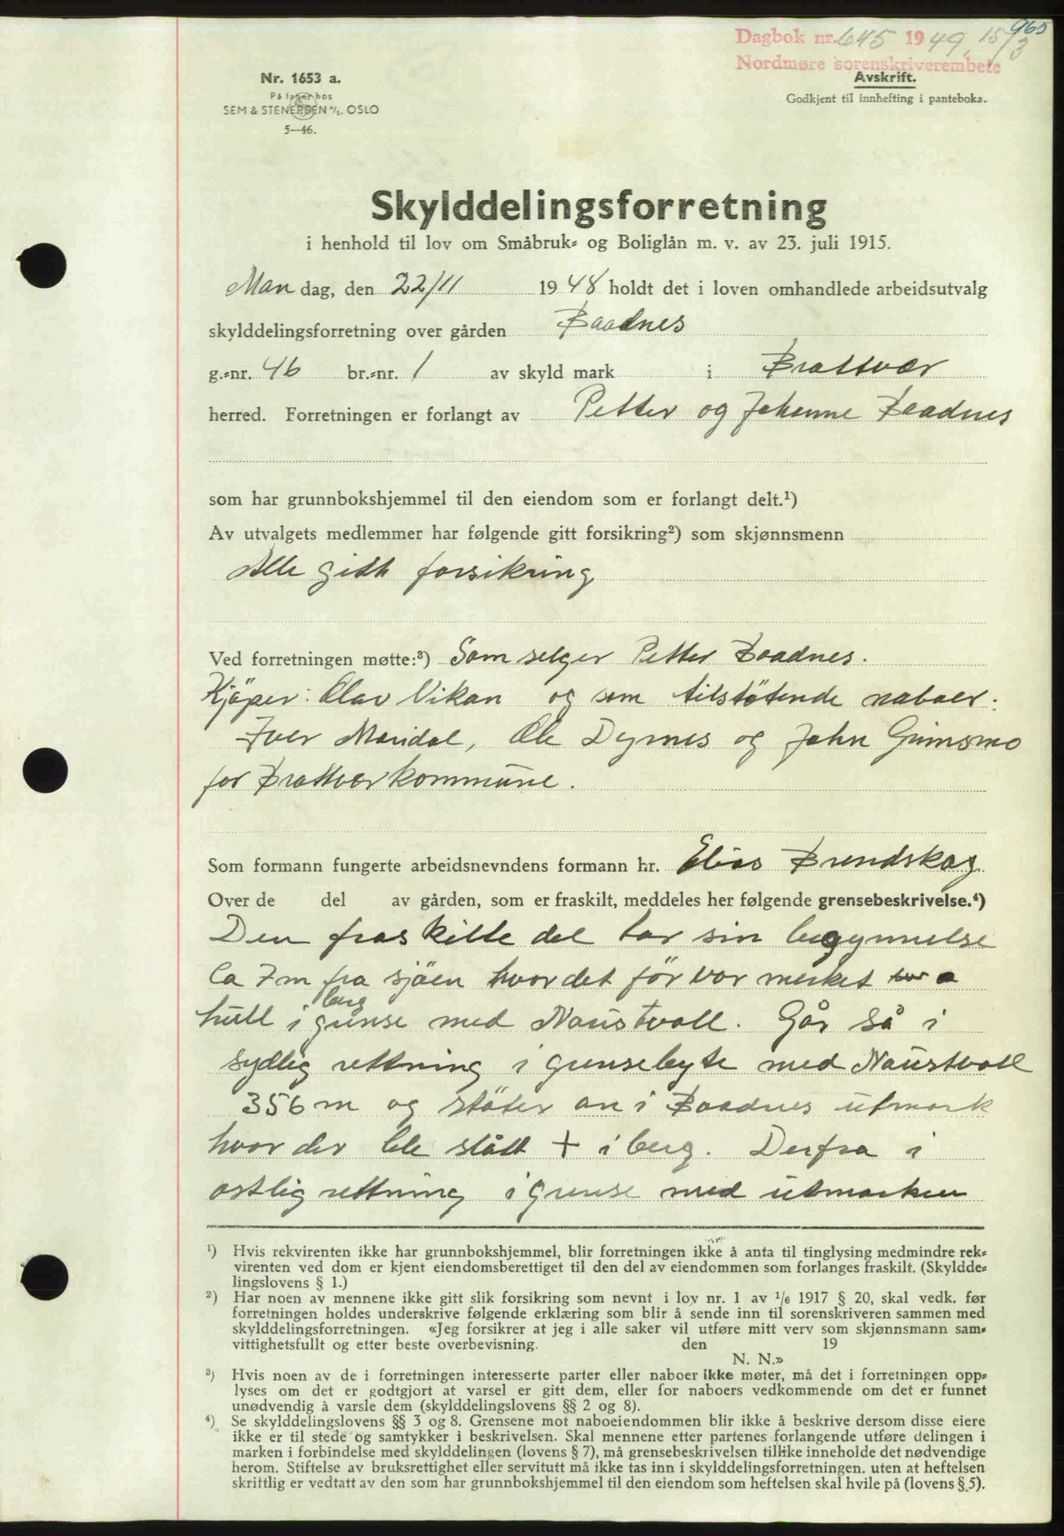 965
Dagbok nr. 645 1949, 15/3
Nordmøre sorenskriverembete
Nr. 1653 a.
På lager hos
SEM & STENERSEN A/S. OSLO
5—46.
Avskrift.
Godkjent til innhefting i panteboka.
Skylddelingsforretning
i henhold til lov om Småbruk- og Boliglån m. v. av 23. juli 1915.
Man dag, den 22/11 1948 holdt det i loven omhandlede arbeidsutvalg
skylddelingsforretning over gården Baadnes
g.-nr. 46 br.-nr. 1 av skyld mark i Brattvær
herred. Forretningen er forlangt av Petter og Johanne Baadnes
som har grunnbokshjemmel til den eiendom som er forlangt delt.¹)
Av utvalgets medlemmer har følgende gitt forsikring²) som skjønnsmenn
Alle gitt forsikring
Ved forretningen møtte:³) Som selger Petter Baadnes.
Kjöper: Olav Vikan og som tilstøtende naboer:
Iver Maridal, Ole Dyrnes og John Grimsmo
for Brattvær kommune.
Som formann fungerte arbeidsnevndens formann hr. Elias Brendskag
Over de del av gården, som er fraskilt, meddeles her følgende grensebeskrivelse.⁴)
Den fraskilte del tar sin begynnelse
Ca 7 m fra sjöen hvor det för var merket
hull i berg grense med Naustvoll. Går så i
sydlig rettning i grensebyte med Naustvoll
356 m og stöter an i Baadnes utmark
hvor der ble slått + i berg. Derfra i
ostlig rettning i grense med utmarken
¹) Hvis rekvirenten ikke har grunnbokshjemmel, blir forretningen ikke å anta til tinglysing medmindre rek-
virenten ved dom er kjent eiendomsberettiget til den del av eiendommen som forlanges fraskilt. (Skyldde-
lingslovens § 1.)
²) Har noen av mennene ikke gitt slik forsikring som nevnt i lov nr. 1 av 1/6 1917 § 20, skal vedk. før
forretningen holdes underskrive følgende erklæring som blir å sende inn til sorenskriveren sammen med
skylddelingsforretningen. «Jeg forsikrer at jeg i alle saker vil utføre mitt verv som skjønnsmann sam-
vittighetsfullt og etter beste overbevisning. den 19
N. N.»
³) Hvis noen av de i forretningen interesserte parter eller naboer ikke møter, må det i forretningen opp-
lyses om det er godtgjort at varsel er gitt dem, eller for naboers vedkommende om det er funnet
unødvendig å varsle dem (skylddelingslovens §§ 2 og 8).
⁴) Se skylddelingslovens §§ 3 og 8. Grensene mot naboeiendommen blir ikke å beskrive dersom disse eiere
ikke er til stede og samtykker i beskrivelsen. Skal mennene etter partenes forlangende utføre delingen i
marken i forbindelse med skylddelingen (lovens § 7), må grensebeskrivelsen tillike inneholde det nødvendige
herom. Stiftelse av bruksrettighet eller servitutt må ikke tas inn i skylddelingsforretningen. uten at heftelsen
skriftlig er vedtatt av den som har grunnbokshjemmel til den eiendom som heftelsen skal hvile på (lovens § 5).